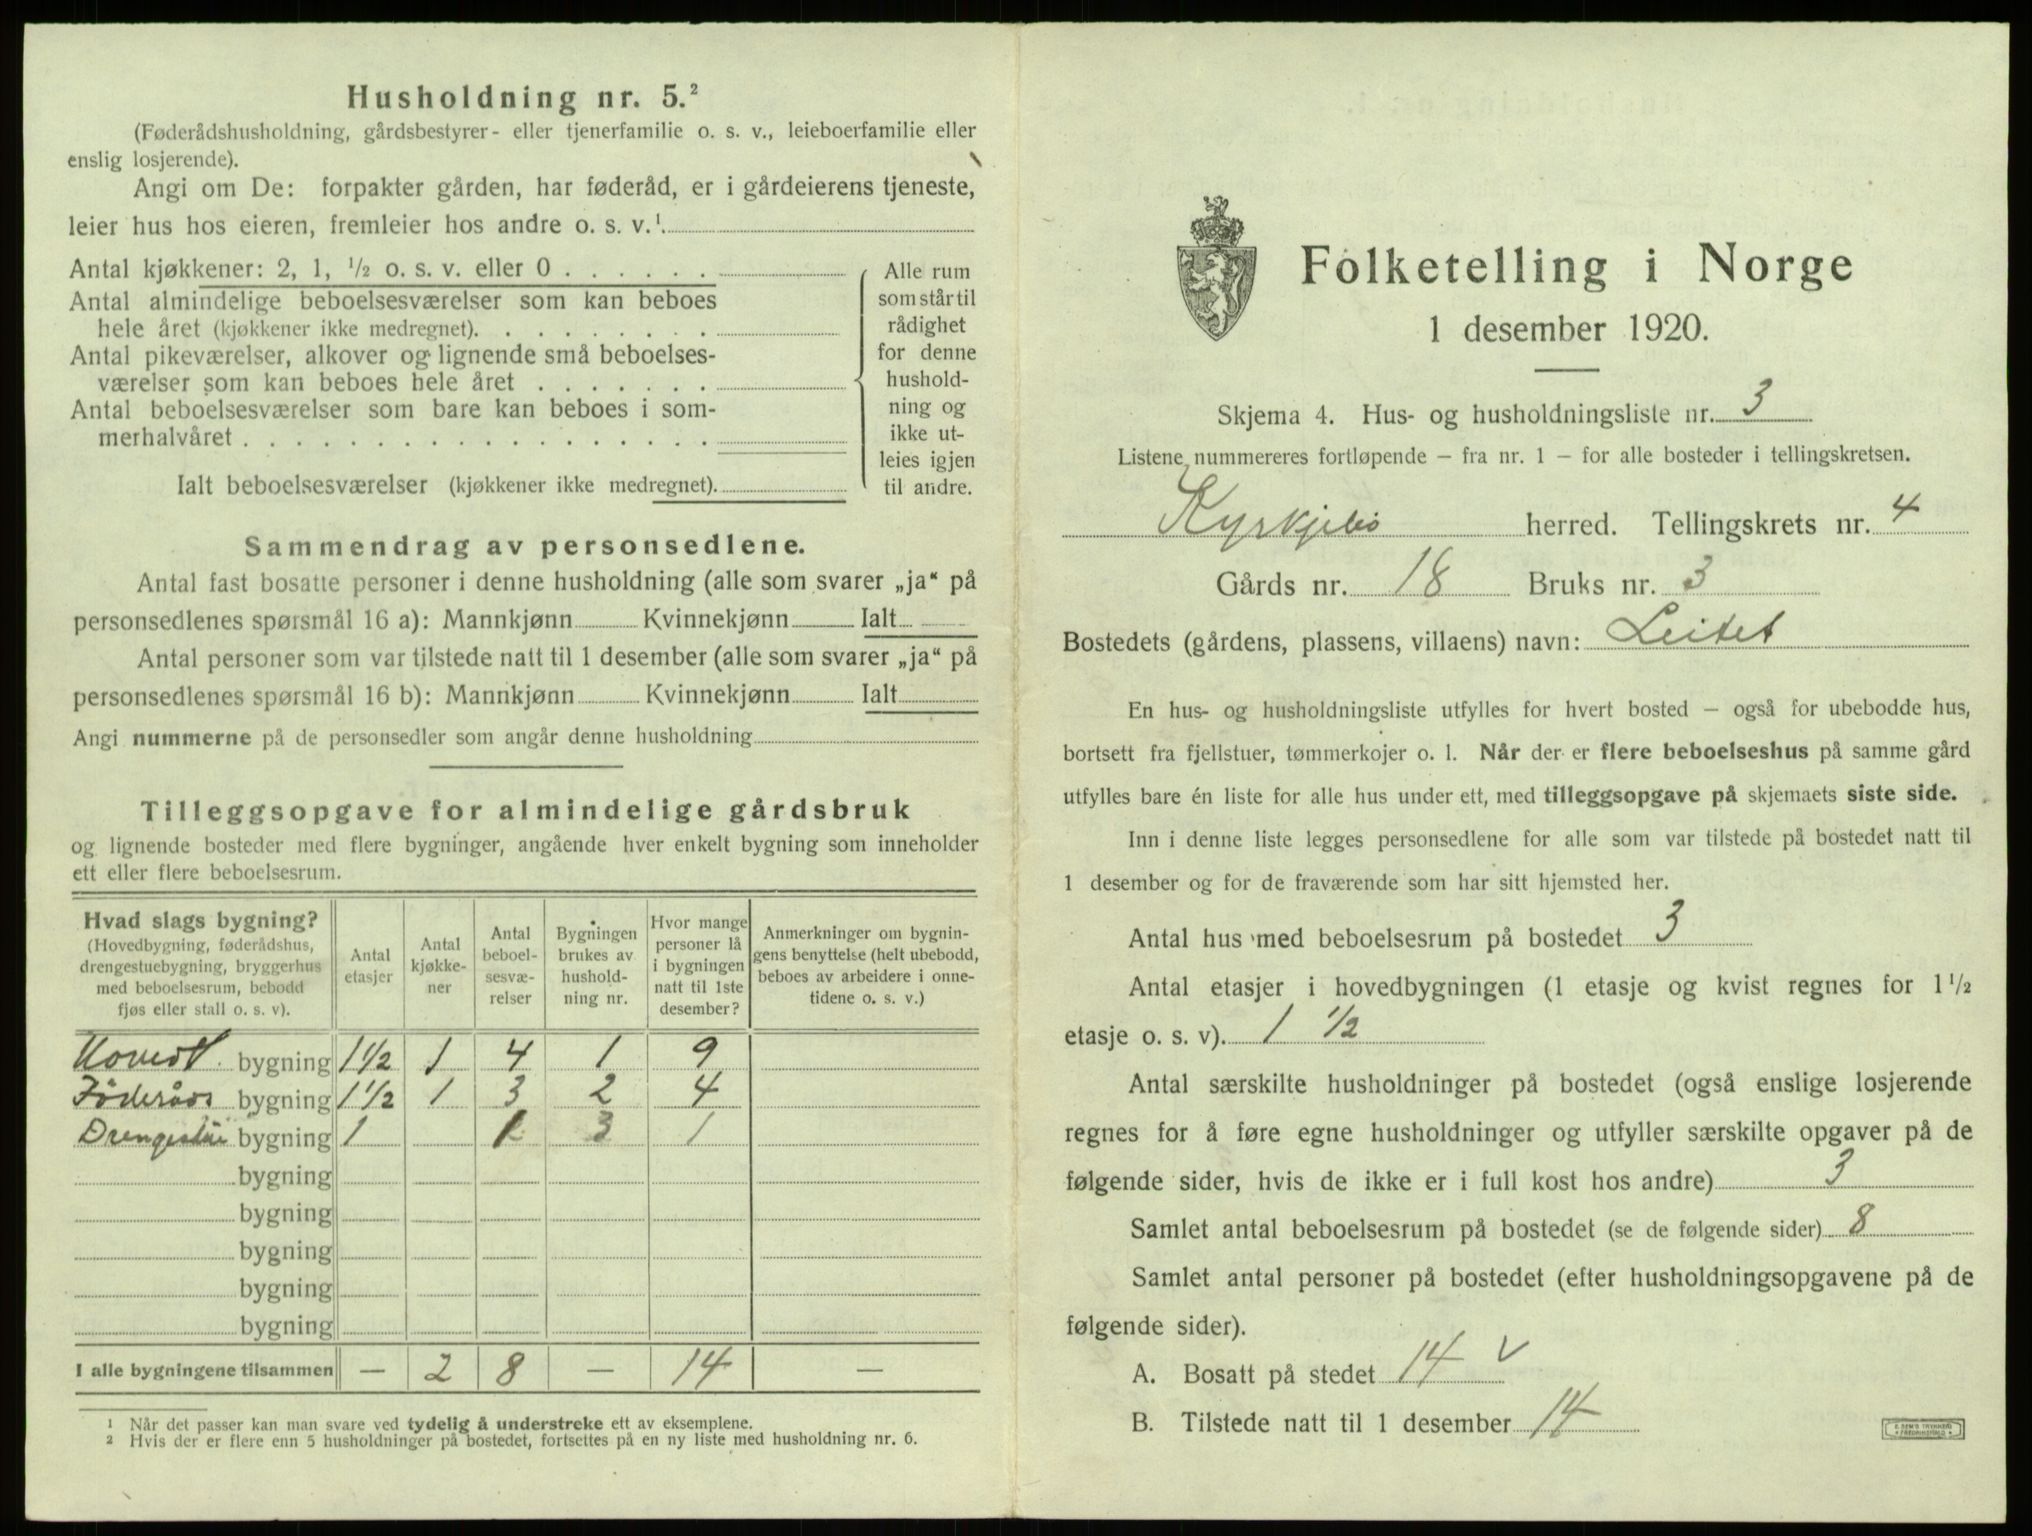 Husholdning nr. 5.²
(Føderådshusholdning, gårdsbestyrer- eller tjenerfamilie o. s. v., leieboerfamilie eller
enslig losjerende).
Angi om De: forpakter gården, har føderåd, er i gårdeierens tjeneste,
leier hus hos eieren, fremleier hos andre o. s. v.¹
Antal kjøkkener: 2, 1, ½ o. s. v. eller 0 . . . . . .
Antal almindelige beboelsesværelser som kan beboes
hele året (kjøkkener ikke medregnet). . . . . . . . .
Antal pikeværelser, alkover og lignende små beboelses-
værelser som kan beboes hele året . . . . . . .
Antal beboelsesværelser som bare kan beboes i som-
merhalvåret . . . . . . . . . . . . . . . . . .
Ialt beboelsesværelser (kjøkkener ikke medregnet).
Alle rum
som står til
rådighet
for denne
hushold-
ning og
ikke ut-
leies igjen
til andre.
Sammendrag av personsedlene.
Antal fast bosatte personer i denne husholdning (alle som svarer „ja“ på
personsedlenes spørsmål 16 a): Mannkjønn Kvinnekjønn Ialt
Antal personer som var tilstede natt til 1 desember (alle som svarer „ja“ på
personsedlenes spørsmål 16 b): Mannkjønn Kvinnekjønn Ialt
Angi nummerne på de personsedler som angår denne husholdning
Tilleggsopgave for almindelige gårdsbruk
og lignende bosteder med flere bygninger, angående hver enkelt bygning som inneholder
ett eller flere beboelsesrum.
Hvad slags bygning?
(Hovedbygning, føderådshus,
drengestuebygning, bryggerhus
med beboelsesrum, bebodd
fjøs eller stall o. s. v).
Antal
etasjer
Antal
kjøkke-
ner
Antal
beboel-
sesvæ-
relser
Bygningen
brukes av
hushold-
ning nr.
Hvor mange
personer lå
i bygningen
natt til 1ste
desember?
Anmerkninger om bygnin-
gens benyttelse (helt ubebodd,
beboes av arbeidere i onne-
tidene o. s. v.)
Hoved bygning 1½ 1 4 1 9
Føderåds bygning 1½ 1 3 2 4
Drengestue bygning 1 1 3 1
bygning
bygning
bygning
bygning
bygning
I alle bygningene tilsammen — 2 8 — 14 —
¹ Når det passer kan man svare ved tydelig å understreke ett av eksemplene.
² Hvis der er flere enn 5 husholdninger på bostedet, fortsettes på en ny liste med husholdning nr. 6.
Folketelling i Norge
1 desember 1920.
Skjema 4. Hus- og husholdningsliste nr. 3
Listene nummereres fortløpende – fra nr. 1 – for alle bosteder i tellingskretsen.
Kyrkjebø herred. Tellingskrets nr. 4
Gårds nr. 18 Bruks nr. 3
Bostedets (gårdens, plassens, villaens) navn: Leitet
En hus- og husholdningsliste utfylles for hvert bosted – også for ubebodde hus,
bortsett fra fjellstuer, tømmerkojer o. l. Når der er flere beboelseshus på samme gård
utfylles bare én liste for alle hus under ett, med tilleggsopgave på skjemaets siste side.
Inn i denne liste legges personsedlene for alle som var tilstede på bostedet natt til
1 desember og for de fraværende som har sitt hjemsted her.
Antal hus med beboelsesrum på bostedet 3
Antal etasjer i hovedbygningen (1 etasje og kvist regnes for 1½
etasje o. s. v). 1 ½
Antal særskilte husholdninger på bostedet (også enslige losjerende
regnes for å føre egne husholdninger og utfyller særskilte opgaver på de
følgende sider, hvis de ikke er i full kost hos andre) 3
Samlet antal beboelsesrum på bostedet (se de følgende sider) 8
Samlet antal personer på bostedet (efter husholdningsopgavene på de
følgende sider).
A. Bosatt på stedet 14 v
B. Tilstede natt til 1 desember 14